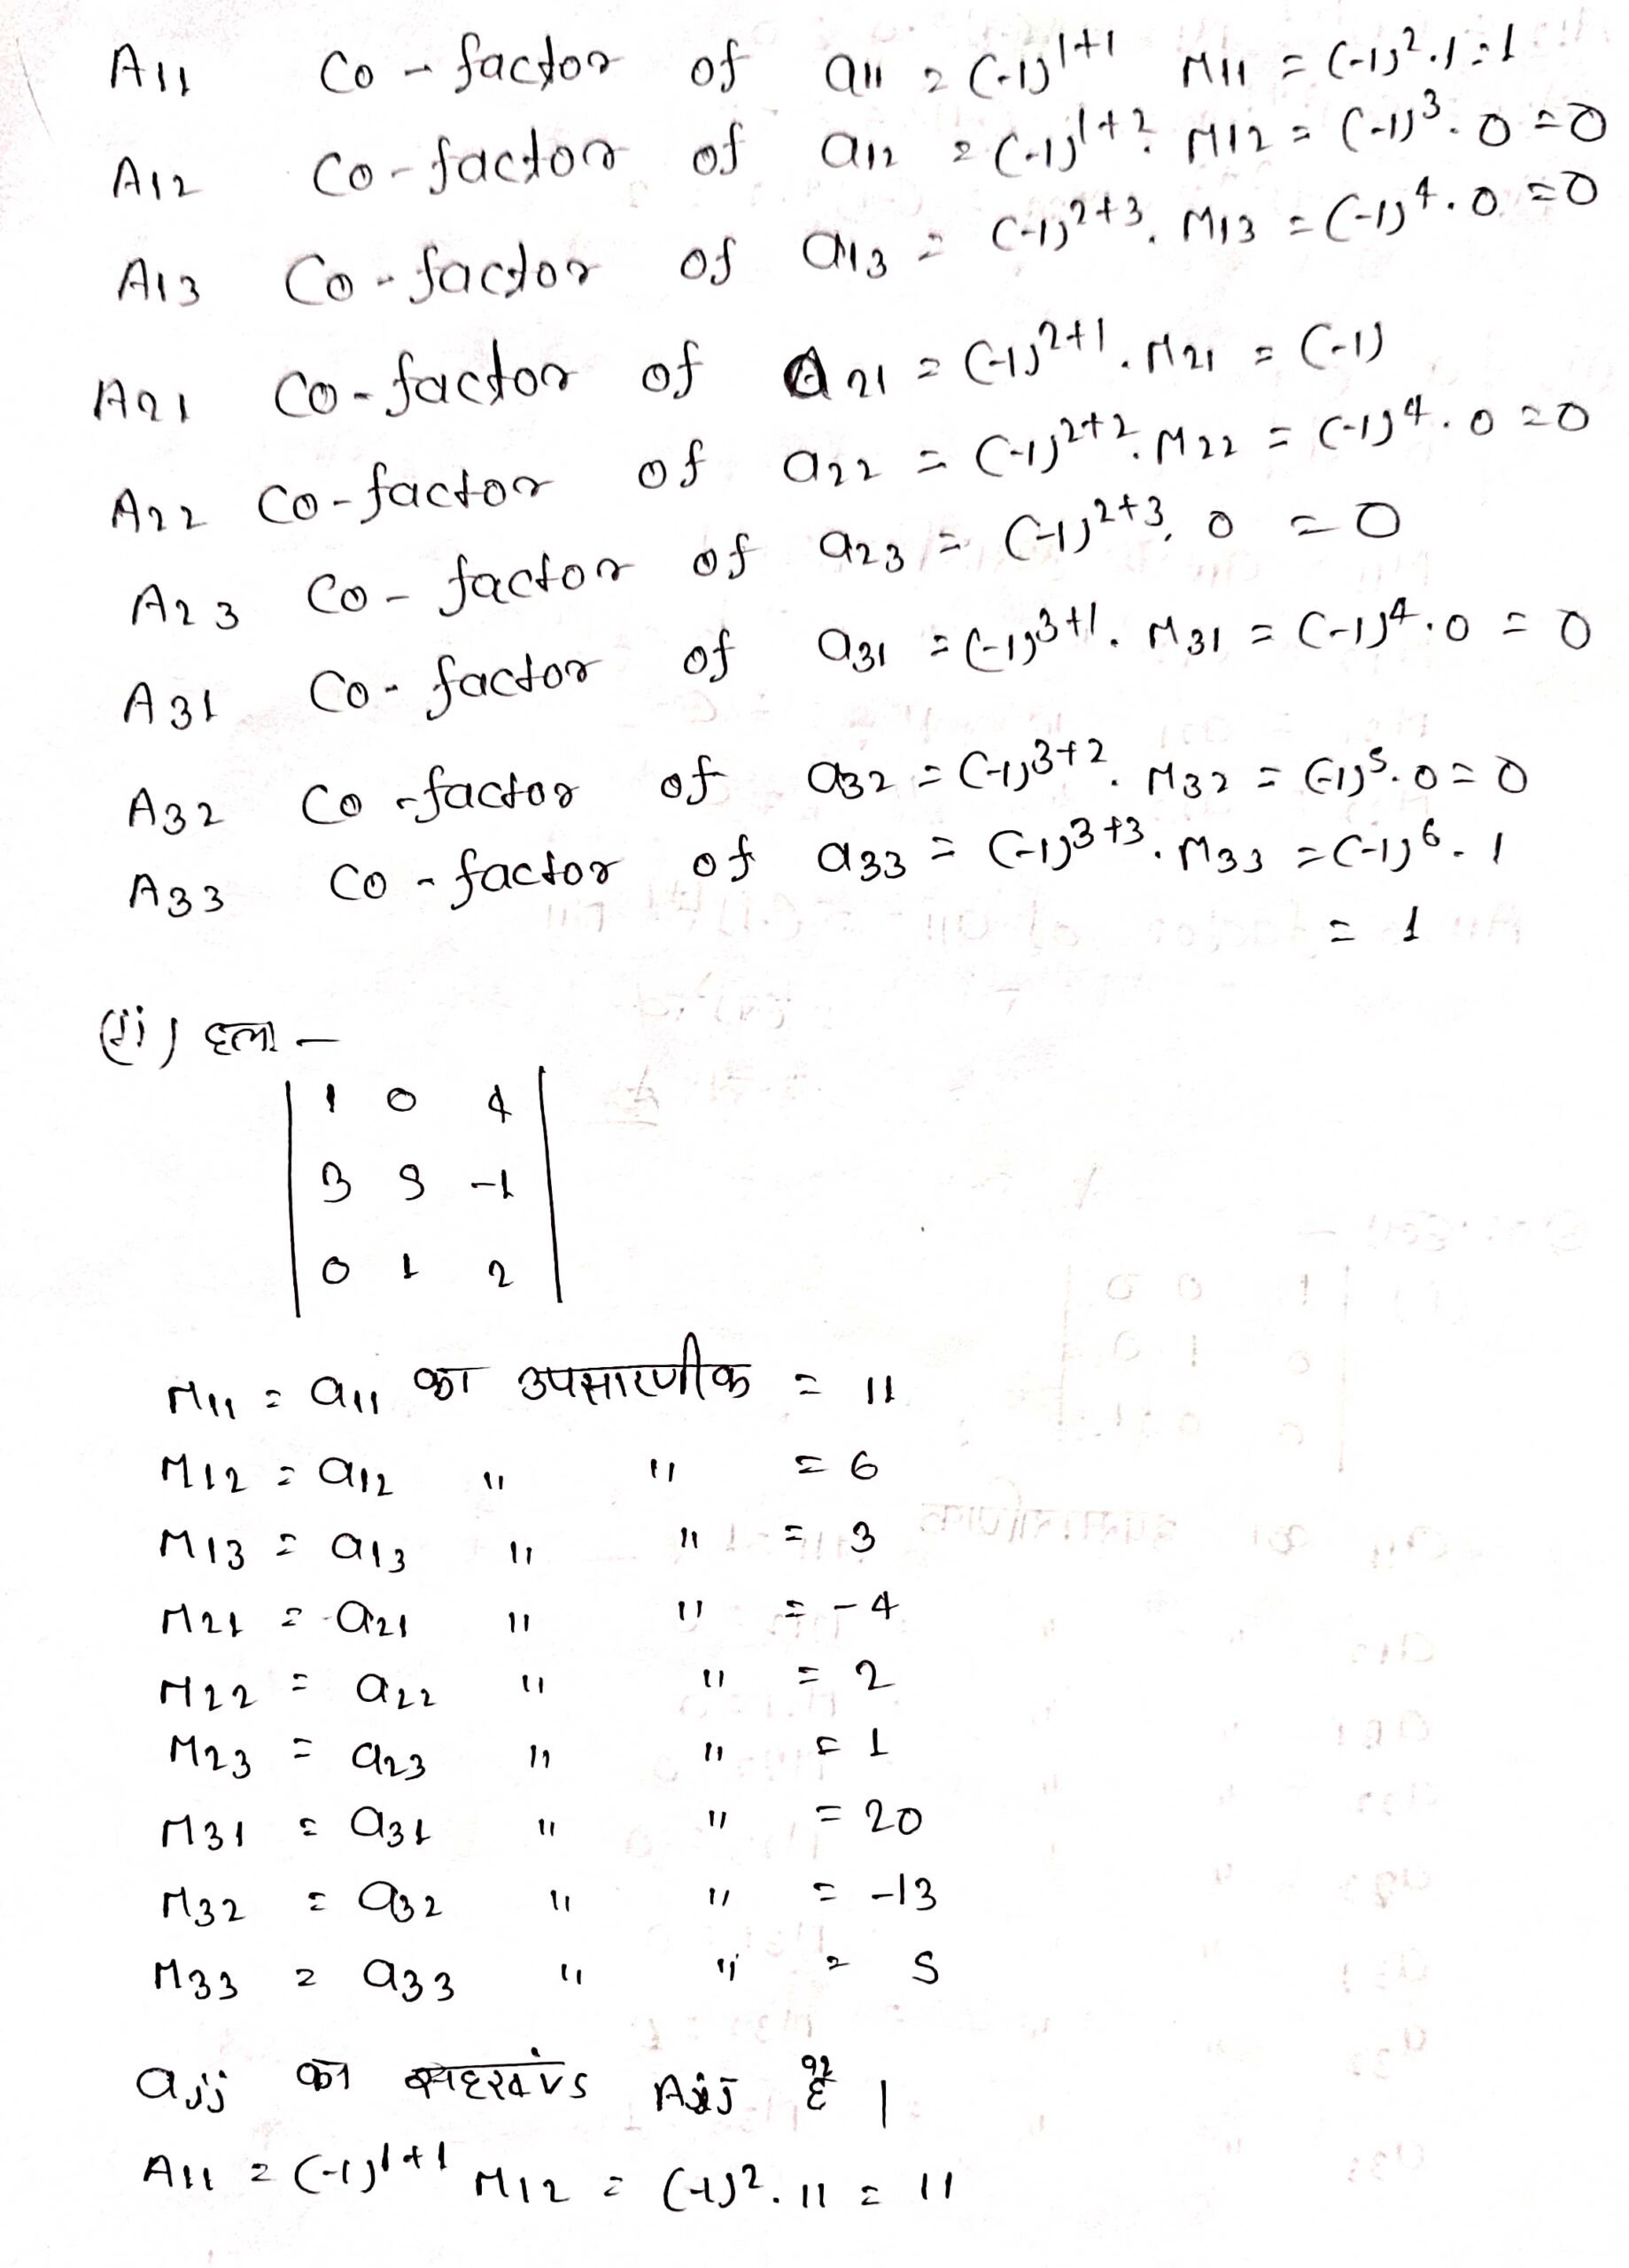 A11 Co-factor of a11 = (-1)^1+1 M11 = (-1)^2.1 = 1
A12 Co-factor of a12 = (-1)^1+2 M12 = (-1)^3. 0 = 0
A13 Co-factor of a13 = (-1)^2+3. M13 = (-1)^4. 0 = 0
A21 Co-factor of a21 = (-1)^2+1. M21 = (-1)
A22 Co-factor of a22 = (-1)^2+2. M22 = (-1)^4. 0 = 0
A23 Co-factor of a23 = (-1)^2+3. 0 = 0
A31 Co-factor of a31 = (-1)^3+1. M31 = (-1)^4. 0 = 0
A32 Co-factor of a32 = (-1)^3+2. M32 = (-1)^5. 0 = 0
A33 Co-factor of a33 = (-1)^3+3. M33 = (-1)^6. 1
= 1
(ii) हल -
1 0 4
3 5 -1
0 1 2
M11 = a11 का उपसारणीक = 11
M12 = a12 " " = 6
M13 = a13 " " = 3
M21 = a21 " " = -4
M22 = a22 " " = 2
M23 = a23 " " = 1
M31 = a31 " " = 20
M32 = a32 " " = -13
M33 = a33 " " = 5
aij का Aij है |
A11 = (-1)^1+1 M12 = (-1)^2. 11 = 11